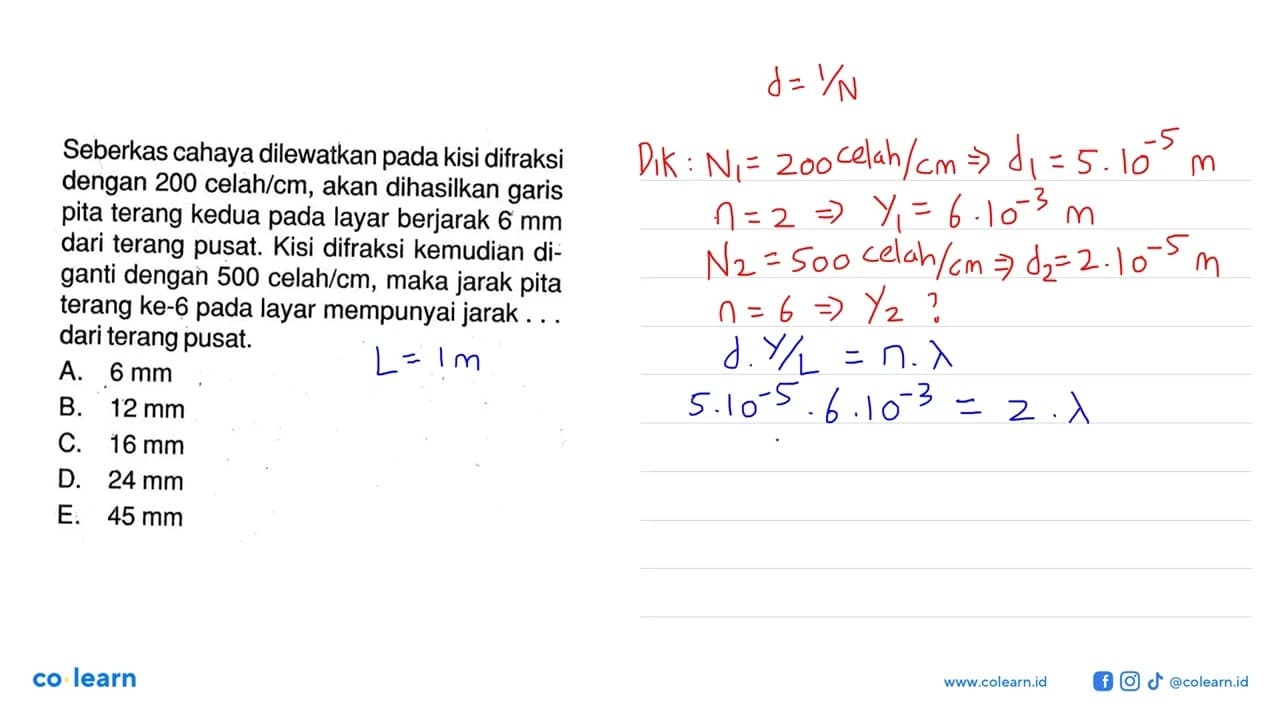 d = 1/N
Seberkas cahaya dilewatkan pada kisi difraksi
dengan 200 celah/cm, akan dihasilkan garis
pita terang kedua pada layar berjarak 6 mm
dari terang pusat. Kisi difraksi kemudian di-
ganti dengan 500 celah/cm, maka jarak pita
terang ke-6 pada layar mempunyai jarak . . .
dari terang pusat.
A. 6 mm
B. 12 mm
C. 16 mm
D. 24 mm
E. 45 mm
L = 1 m
Dik : N₁ = 200 celah/cm ⇒ d₁ = 5 . 10⁻⁵ m
n = 2 ⇒ Y₁ = 6 . 10⁻³ m
N₂ = 500 celah/cm ⇒ d₂ = 2 . 10⁻⁵ m
n = 6 ⇒ Y₂ ?
d . Y/L = n . λ
5 . 10⁻⁵ . 6 . 10⁻³ = 2 . λ
co learn
www.colearn.id
@colearn.id